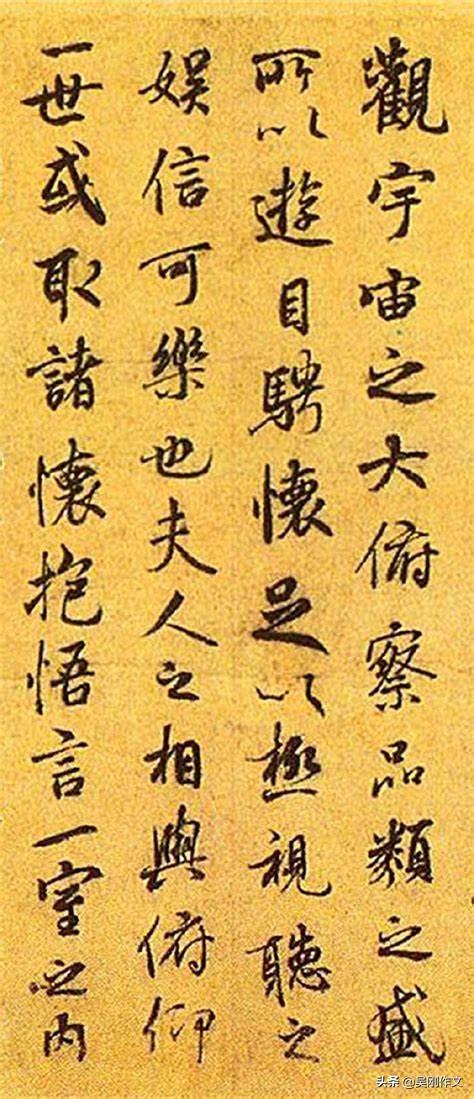 觀宇宙之大俯察品類之盛
所以遊目騁懷足以極視聽之
娛信可樂也夫人之相與俯仰
一世或取諸懷抱悟言一室之內
头条@吴刚作文